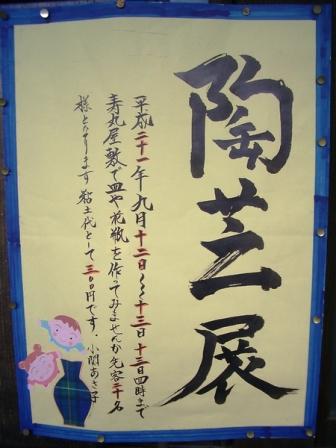 陶芸展
平成二十一年九月十二日〜十三日十三日四時まで
寿丸屋敷で皿や花瓶を作ってみませんか先客二十名
様となります粘土代として三〇〇円です。小関あき子